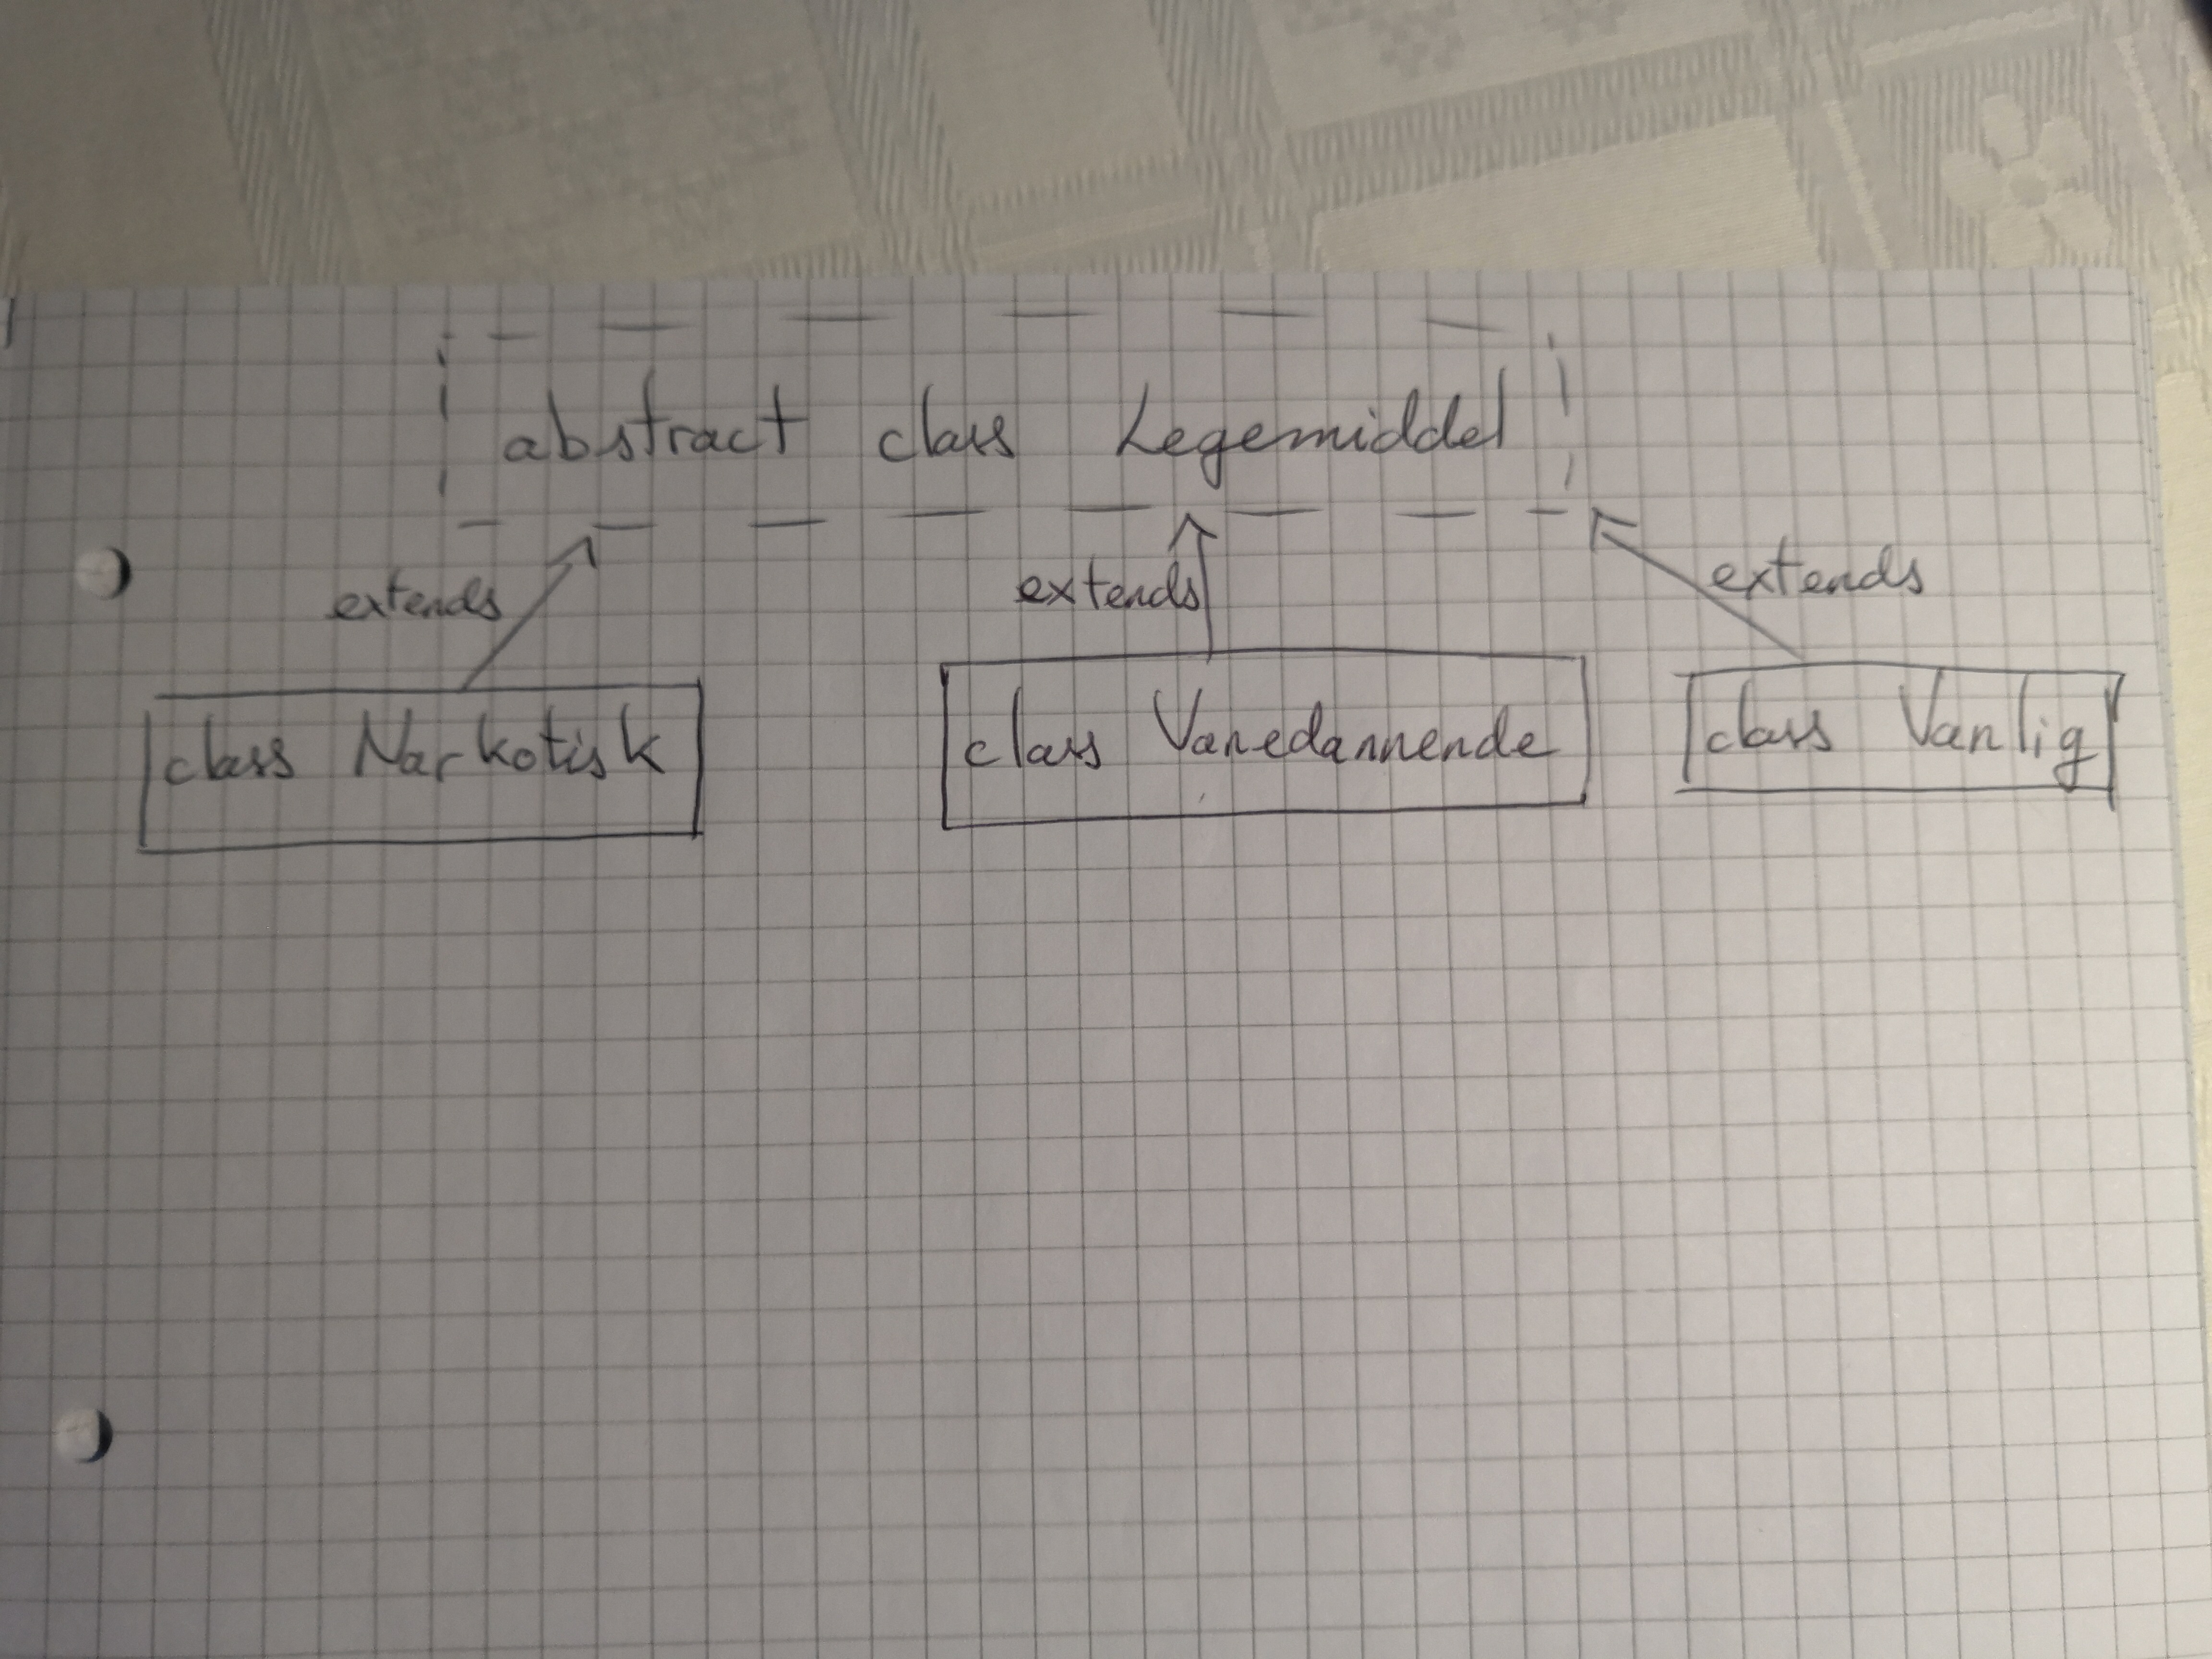 abstract class Legemiddel
extends extends extends
class Narkotisk class Vanedannende class Vanlig